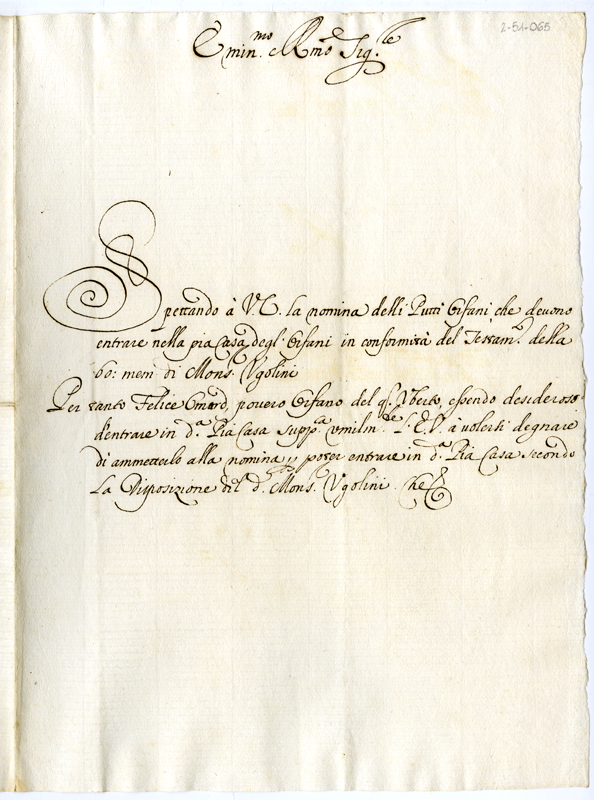 2-51-065
Emin.mo e Rmo Sig.re
Spettando à V. E. la nomina delli Putti Orfani che devono
entrare nella pia Casa degl' Orfani in conformità del Testam.o della
bo: mem: di Mons.r Ugolini
Per tanto Felice povero Orfano del q. Uberto, essendo desideroso
d'entrare in d.a Pia Casa supp.ca umilm.te l'E. V. à volerli degnare
di ammetterlo alla nomina p poter entrare in d.a Pia Casa secondo
La Disposizione di d.o Mons.r Ugolini. Che